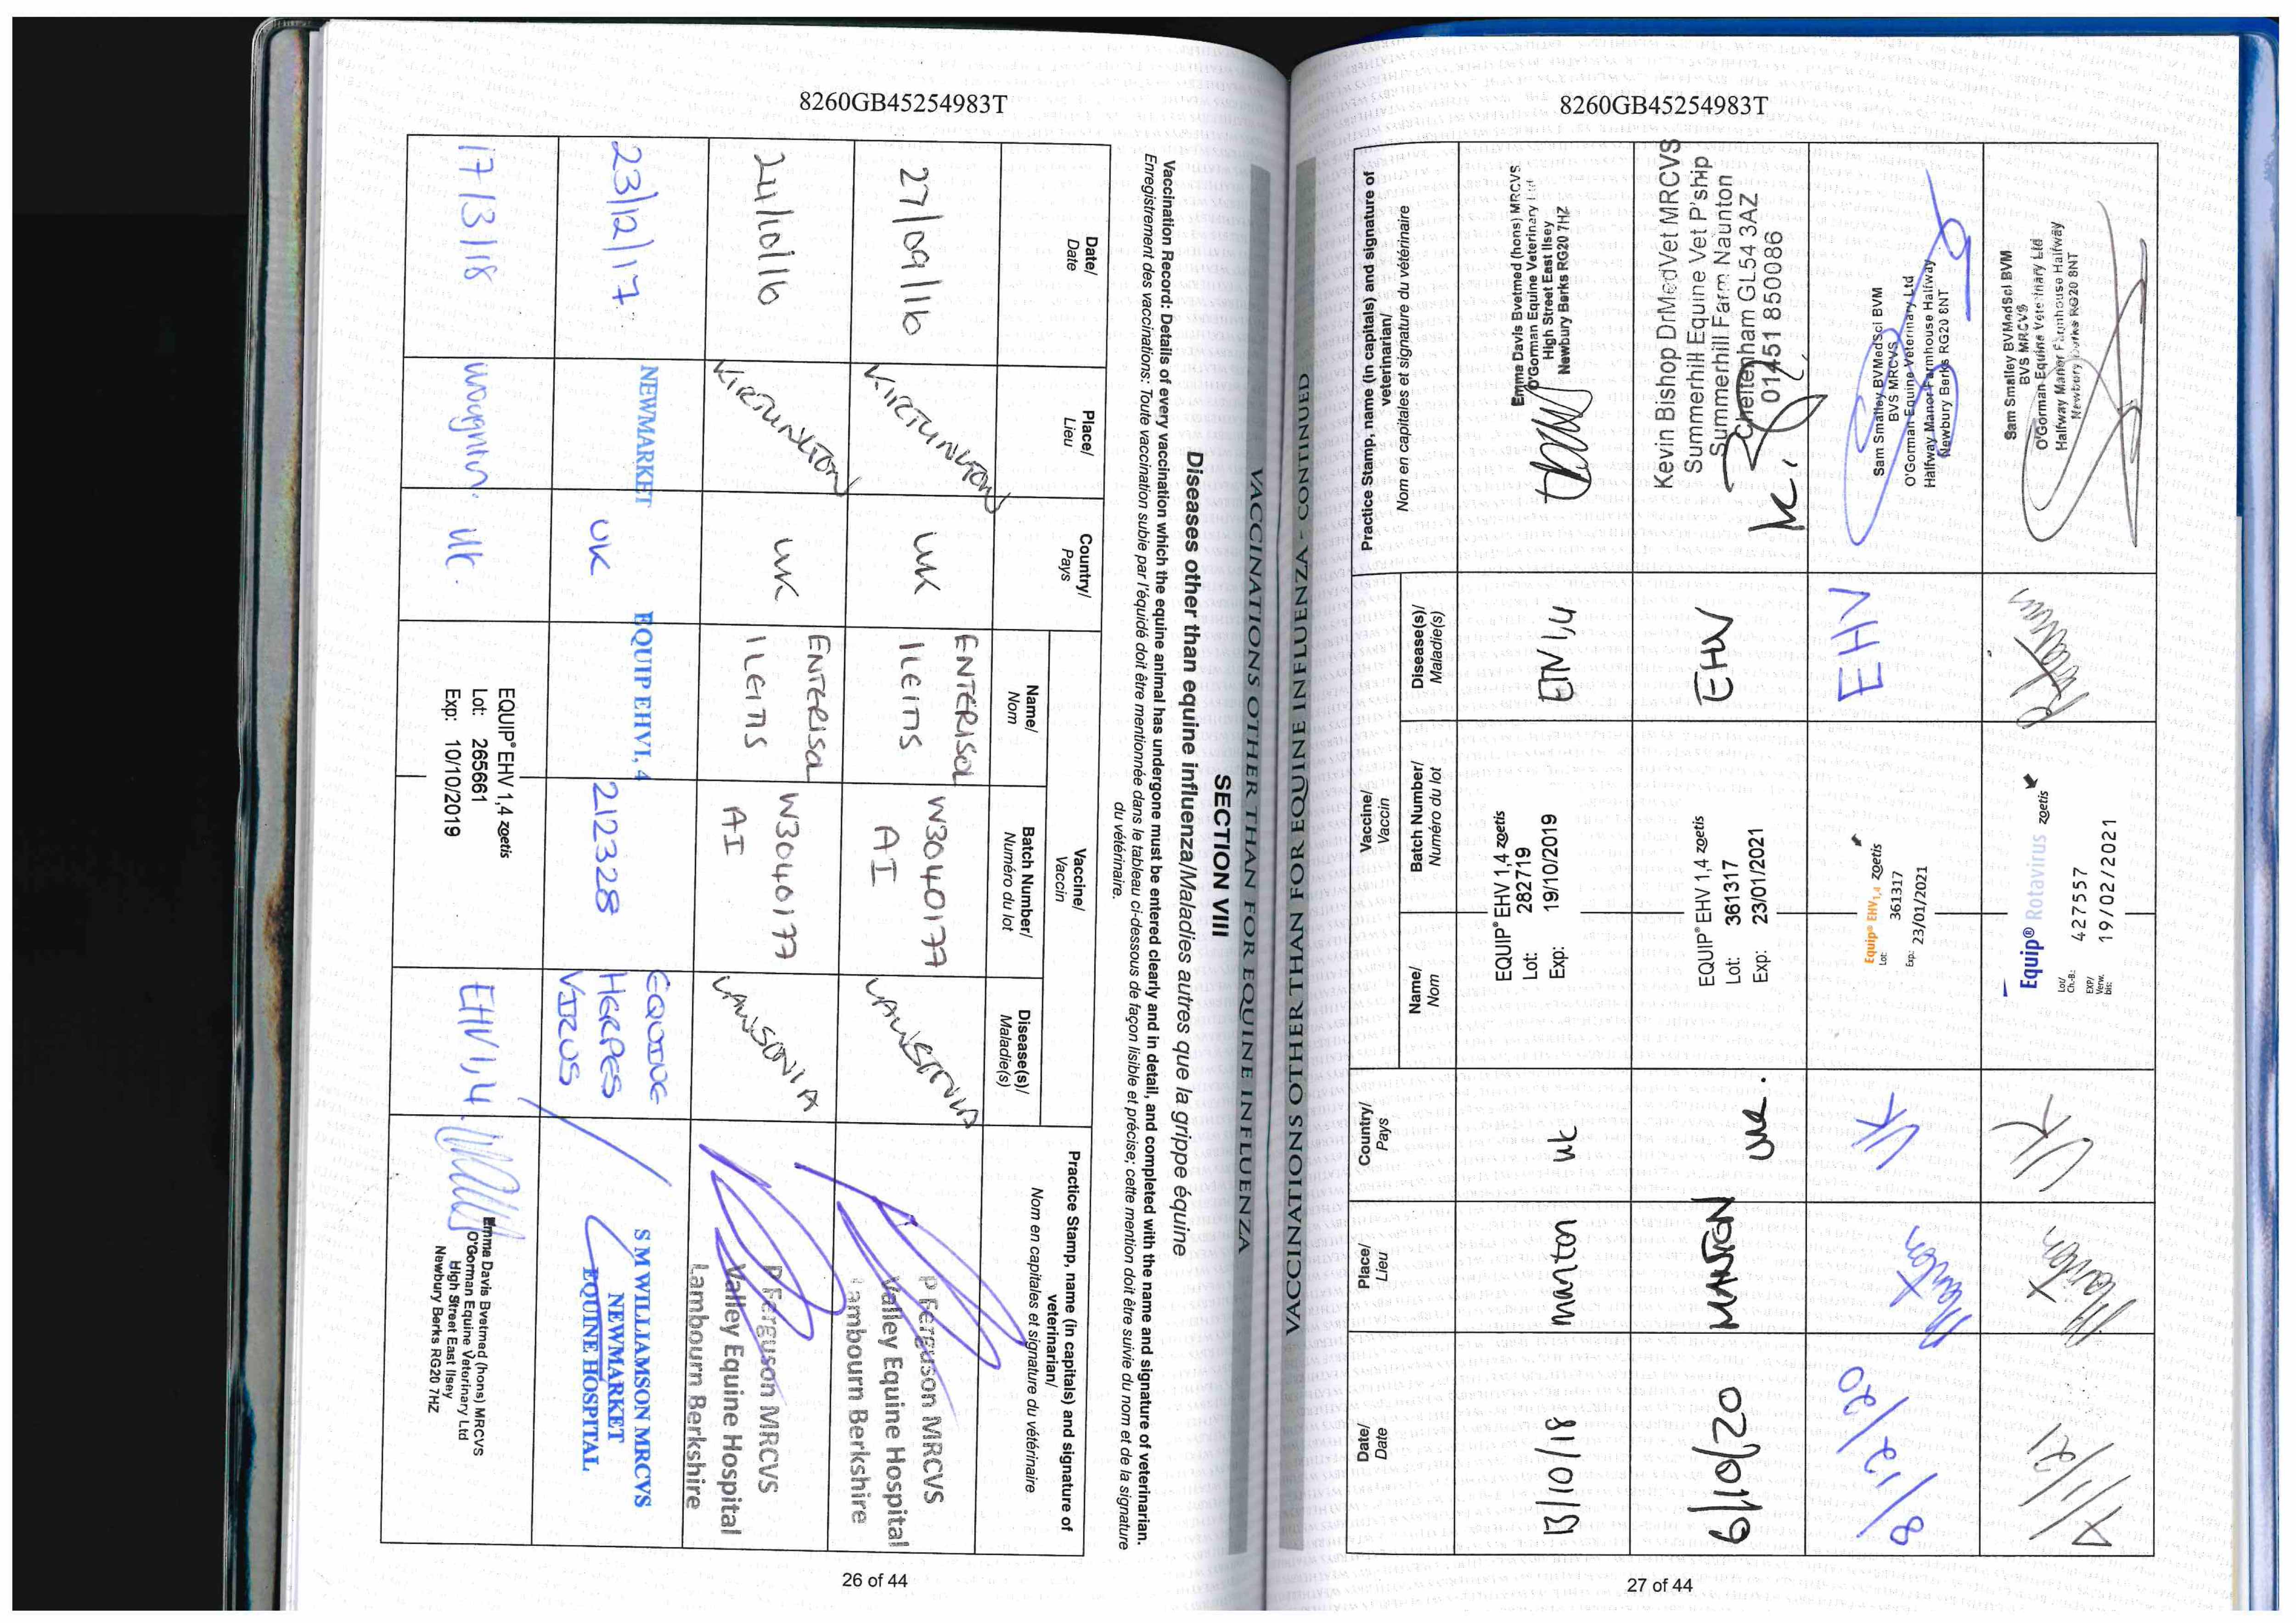 8260GB45254983T
VACCINATIONS OTHER THAN FOR EQUINE INFLUENZA
SECTION VIII
Diseases other than equine influenza/Maladies autres que la grippe équine
Vaccination Record: Details of every vaccination which the equine animal has undergone must be entered clearly and in detail, and completed with the name and signature of veterinarian.
Enregistrement des vaccinations: Toute vaccination subie par l'équidé doit être mentionnée dans le tableau ci-dessous de façon lisible et précise; cette mention doit être suivie du nom et de la signature
du vétérinaire.
Date/
Date
Place/
Lieu
Country/
Pays
Vaccine/
Vaccin
Name/
Nom
Batch Number/
Numéro du lot
Disease(s)/
Maladie(s)
Practice Stamp, name (in capitals) and signature of
veterinarian/
Nom en capitales et signature du vétérinaire
27/09/16
KIRTLINGTON
UK
ENTERISOL
ILEITIS
W3040177
AI
LAWSONIA
P Ferguson MRCVS
Valley Equine Hospital
Lambourn Berkshire
24/10/16
KIRTLINGTON
UK
ENTERISOL
ILEITIS
W3040177
AI
LAWSONIA
P Ferguson MRCVS
Valley Equine Hospital
Lambourn Berkshire
23/12/17
NEWMARKET
UK
EQUIP EHV1, 4
212328
EQUINE
HERPES
VIRUS
S M WILLIAMSON MRCVS
NEWMARKET
EQUINE HOSPITAL
17/3/18
UK.
EQUIP® EHV 1,4 zoetis
Lot: 265661
Exp: 10/10/2019
EHV1,4.
Emma Davis Bvetmed (hons) MRCVS
O'Gorman Equine Veterinary Ltd
High Street East Ilsey
Newbury Berks RG20 7HZ
26 of 44
8260GB45254983T
VACCINATIONS OTHER THAN FOR EQUINE INFLUENZA - CONTINUED
Date/
Date
Place/
Lieu
Country/
Pays
Vaccine/
Vaccin
Name/
Nom
Batch Number/
Numéro du lot
Disease(s)/
Maladie(s)
Practice Stamp, name (in capitals) and signature of
veterinarian/
Nom en capitales et signature du vétérinaire
13/10/18
manton
UK
EQUIP® EHV 1,4 zoetis
Lot: 282719
Exp: 19/10/2019
EHV 1,4
Emma Davis Bvetmed (hons) MRCVS
O'Gorman Equine Veterinary Ltd
High Street East Ilsey
Newbury Berks RG20 7HZ
6/10/20
MANTON
UK.
EQUIP® EHV 1,4 zoetis
Lot: 361317
Exp: 23/01/2021
EHV
Kevin Bishop DrMedVet MRCVS
Summerhill Equine Vet P'ship
Summerhill Farm Naunton
Cheltenham GL54 3AZ
01451 850086
8/12/20
Manton
UK
Equip® EHV1,4 zoetis
Lot: 361317
Exp: 23/01/2021
EHV
Sam Smalley BVMedSci BVM
BVS MRCVS
O'Gorman Equine Veterinary Ltd
Halfway Manor Farmhouse Halfway
Newbury Berks RG20 8NT
Manton
UK
Equip® Rotavirus zoetis
Lot/
Ch.-B.: 427557
EXP/
Verw.
bis: 19/02/2021
Sam Smalley BVMedSci BVM
BVS MRCVS
O'Gorman Equine Veterinary Ltd
Halfway Manor Farmhouse Halfway
Newbury Berks RG20 8NT
27 of 44